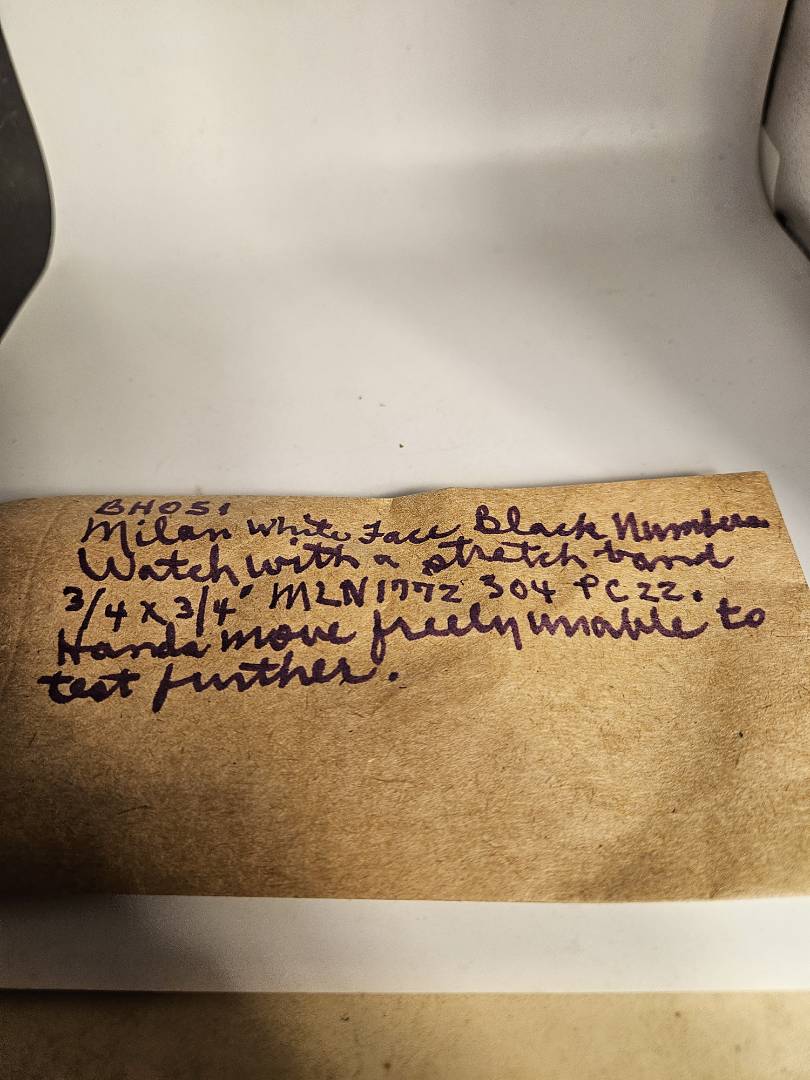 BH051
Milan White Face Black Numbers
Watch with a stretch band
3/4 x 3/4" MLN1772 304 PC22.
Hands move freely unable to
test further.